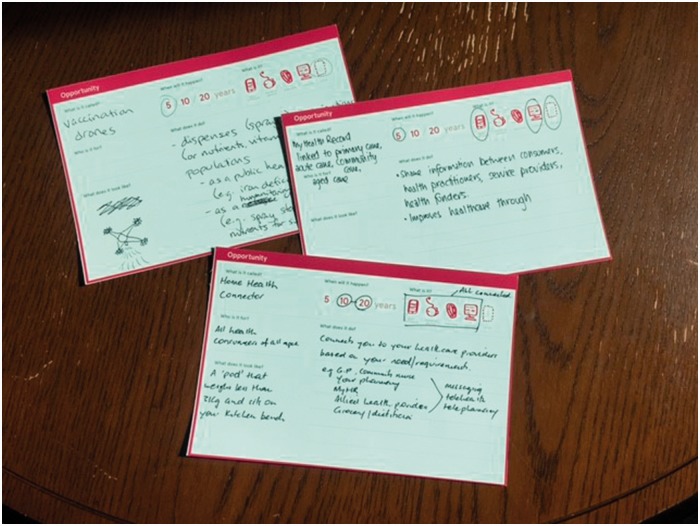 Opportunity
What is it called?
vaccination
drones
Who is it for?
What does it look like?
When will it happen?
5 10 20 years
What is it?
What does it do?
- dispenses (spray
(or nutrients, vitam
populations
- as a public hea
(e.g. iron defic
humanitarian
- as a
(e.g. spray
nutrients for s
Opportunity
What is it called?
My Health Record
linked to primary care,
acute care, community
care,
Who is it for?
aged care
What does it look like?
When will it happen?
5 10 20 years
What is it?
What does it do?
• Share information between consumers,
health practitioners, service providers,
health funders.
• Improves healthcare through
Opportunity
What is it called?
Home Health
Connector
Who is it for?
All health
consumers of all ages
What does it look like?
A 'pod' that
weighs less than
3kg and sits on
your kitchen bench
When will it happen?
5 10 20 years
What is it?
All connected
What does it do?
Connects you to your healthcare providers
based on your need/requirements.
eg G.P, community nurse
Your pharmacy
MyHR
Allied health provider
Grocery/dietitian
messaging
telehealth
telepharmacy